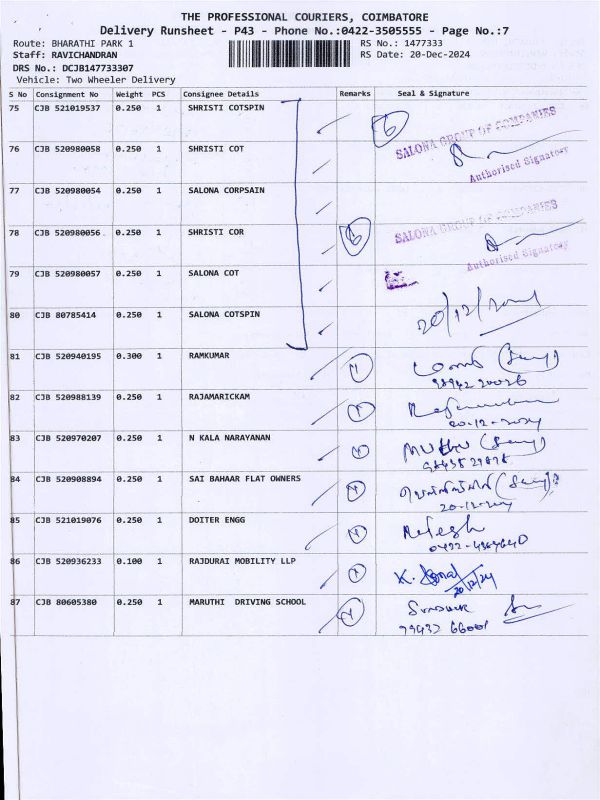 THE PROFESSIONAL COURIERS, COIMBATORE
Delivery Runsheet - P43 - Phone No.:0422-3505555 - Page No.:7
Route: BHARATHI PARK 1 RS No.: 1477333
Staff: RAVICHANDRAN RS Date: 20-Dec-2024
DRS No.: DCJB147733307
Vehicle: Two Wheeler Delivery
S No Consignment No Weight PCS Consignee Details Remarks Seal & Signature
75 CJB 521019537 0.250 1 SHRISTI COTSPIN 6 SALONA GROUP OF COMPANIES
76 CJB 520980058 0.250 1 SHRISTI COT Authorised Signatory
77 CJB 520980054 0.250 1 SALONA CORPSAIN
78 CJB 520980056 0.250 1 SHRISTI COR 6 SALONA GROUP OF COMPANIES
Authorised Signatory
79 CJB 520980057 0.250 1 SALONA COT
80 CJB 80785414 0.250 1 SALONA COTSPIN 20/12/2024
81 CJB 520940195 0.300 1 RAMKUMAR
82 CJB 520988139 0.250 1 RAJAMARICKAM
20-12-2024
83 CJB 520970207 0.250 1 N KALA NARAYANAN MUTHU
84 CJB 520908894 0.250 1 SAI BAHAAR FLAT OWNERS
20-12-2024
85 CJB 521019076 0.250 1 DOITER ENGG
86 CJB 520936233 0.100 1 RAJDURAI MOBILITY LLP K.
20/12/24
87 CJB 80605380 0.250 1 MARUTHI DRIVING SCHOOL